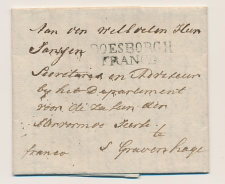 Aan den WelEdelen Heer
Janssen DOESBORGH
FRANCO
Secretaris en Adviseur
by het Departement
voor de Zaken der
Hervormde Kerk &
franco s Gravenhage